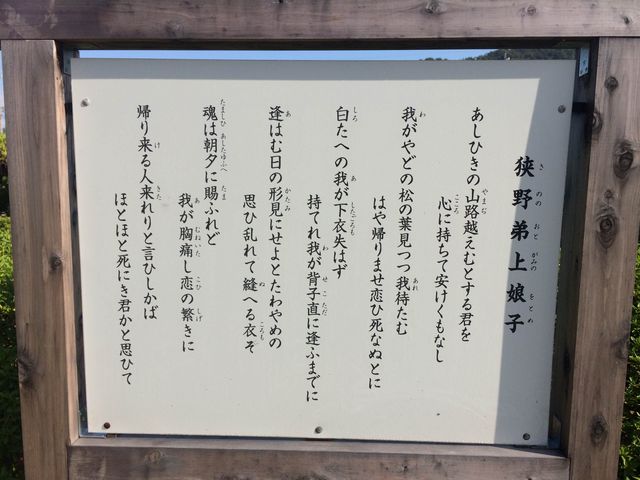 狭野弟上娘子
あしひきの山路越えむとする君を
心に持ちて安けくもなし
我がやどの松の葉見つつ我待たむ
はや帰りませ恋ひ死なぬとに
白たへの我が下衣失はず
持てれ我が背子直に逢ふまでに
逢はむ日の形見にせよとたわやめの
思ひ乱れて縫へる衣そ
魂は朝夕に賜ふれど
我が胸痛し恋の繁きに
帰り来る人来れりと言ひしかば
ほとほと死にき君かと思ひて